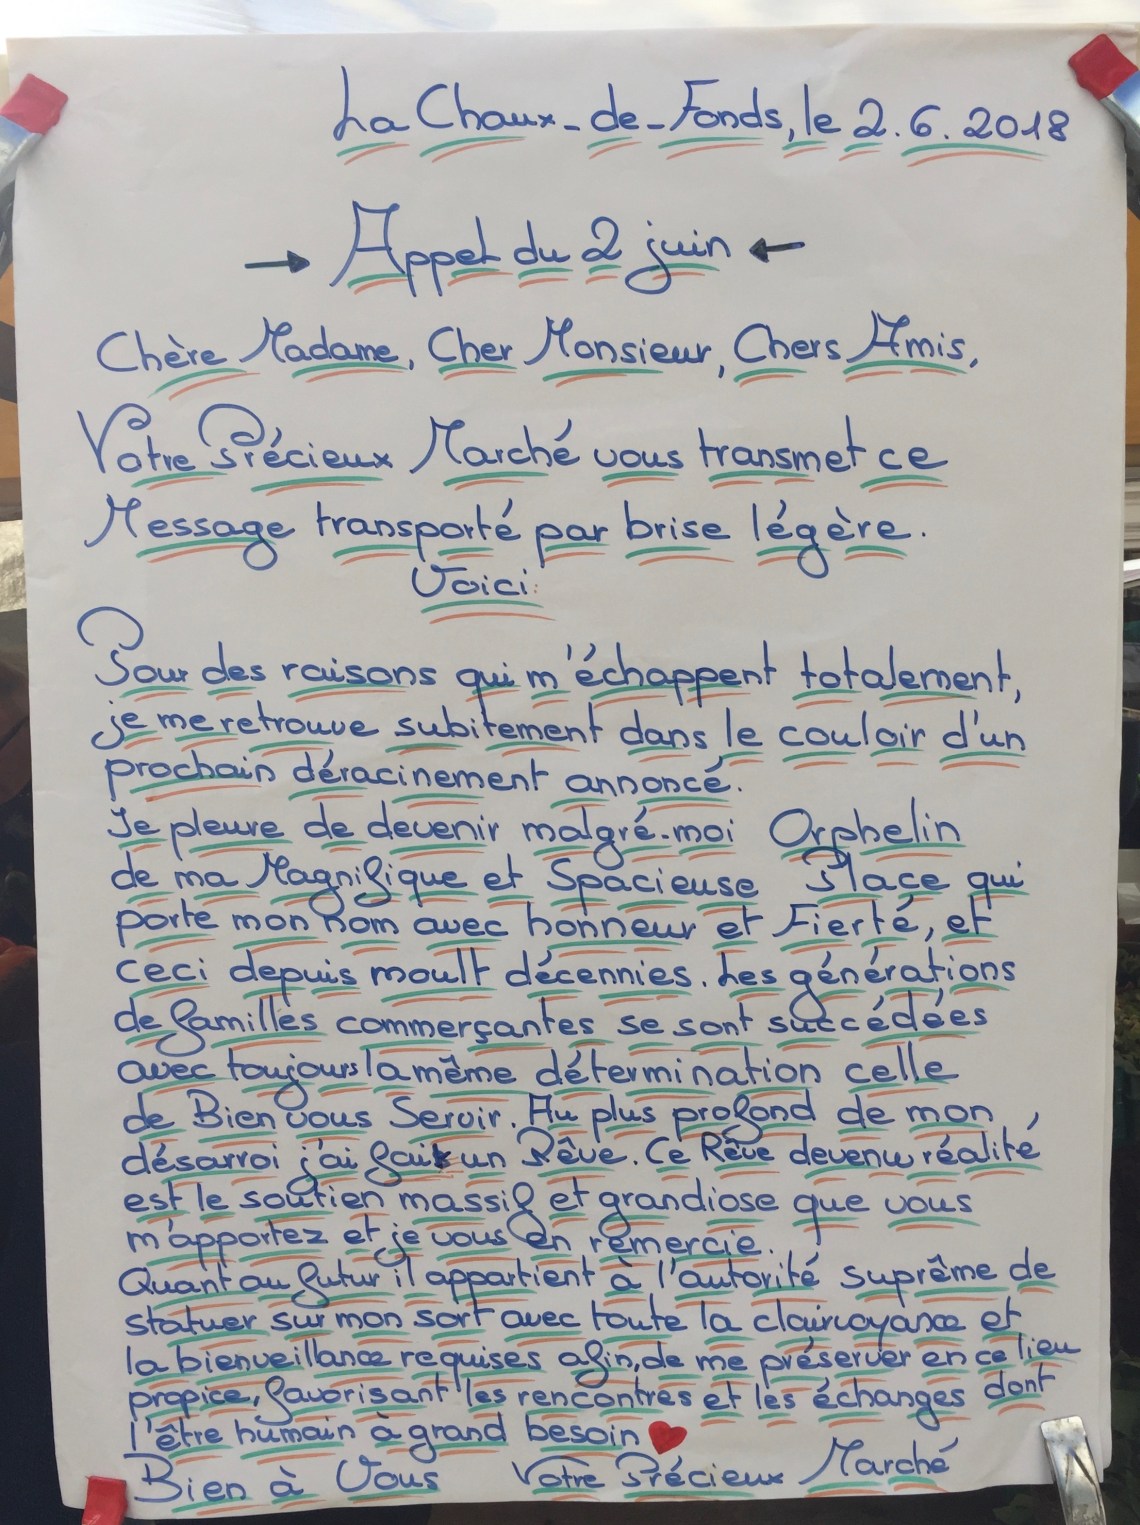 La Chaux-de-Fonds, le 2.6.2018
→ Appel du 2 juin ←
Chère Madame, Cher Monsieur, Chers Amis,
Votre Précieux Marché vous transmet ce
Message transporté par brise légère.
Voici:
Pour des raisons qui m'échappent totalement,
je me retrouve subitement dans le couloir d'un
prochain déracinement annoncé.
Je pleure de devenir malgré-moi Orphelin
de ma Magnifique et Spacieuse Place qui
porte mon nom avec honneur et Fierté, et
ceci depuis moult décennies. Les générations
de familles commerçantes se sont succédées
avec toujours la même détermination celle
de Bien vous Servir. Au plus profond de mon
désarroi j'ai fait un Rêve. Ce Rêve devenu réalité
est le soutien massif et grandiose que vous
m'apportez et je vous en remercie.
Quant au futur il appartient à l'autorité suprême de
statuer sur mon sort avec toute la clairvoyance et
la bienveillance requises afin, de me préserver en ce lieu
propice, favorisant les rencontres et les échanges dont
l'être humain à grand besoin ♥
Bien à Vous Votre Précieux Marché